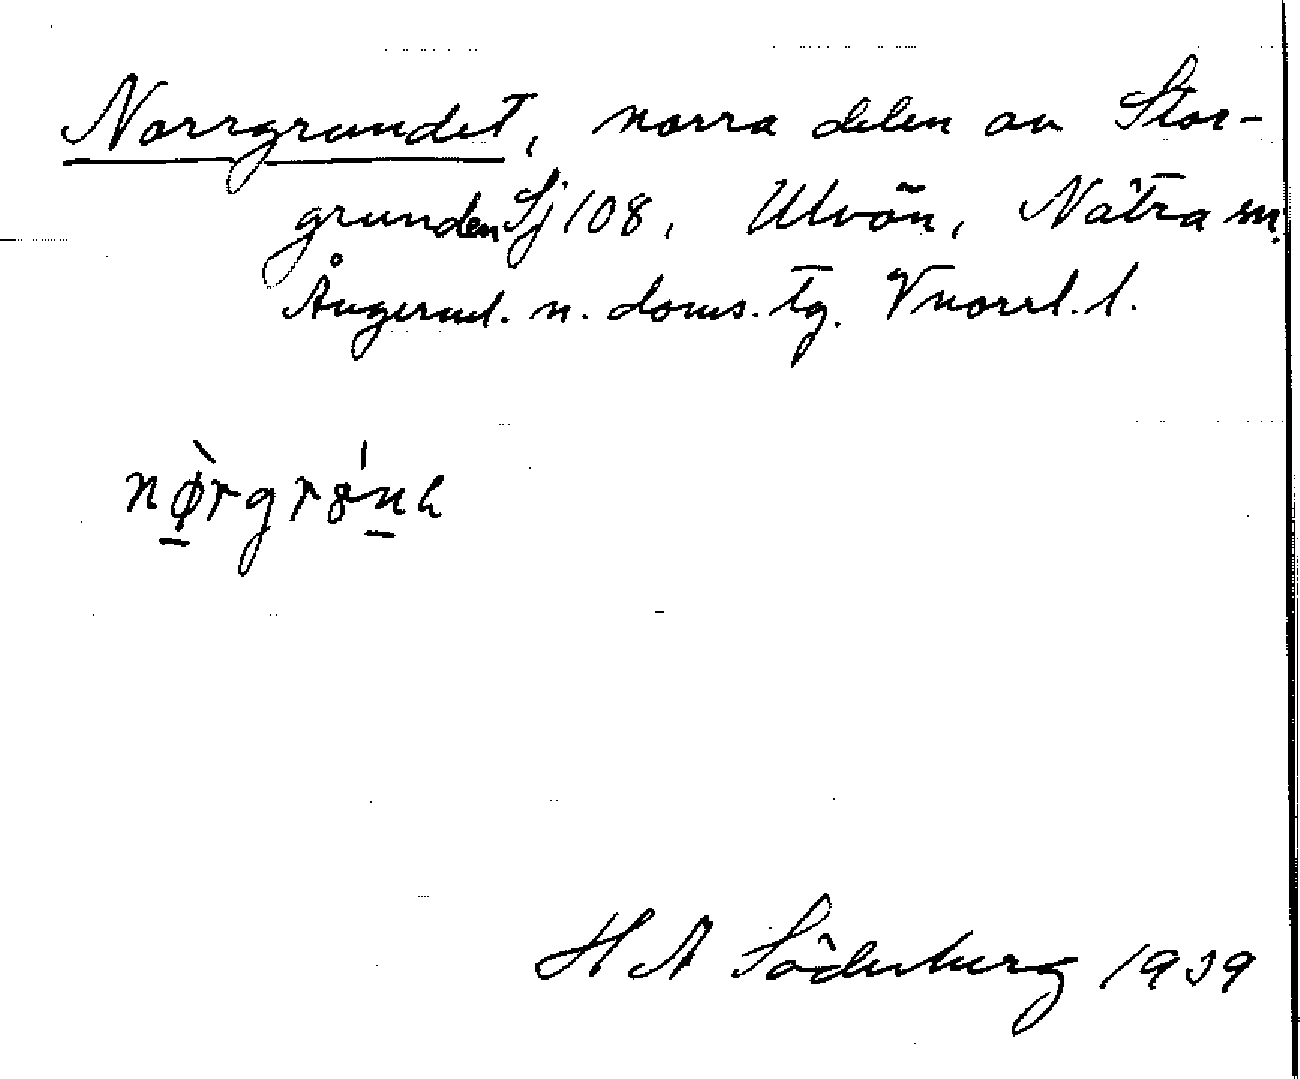 Norrgrundet, norra delen av Stor-
grunden Sj 108, Ulvön, Nätra sn.
Ångerml. n. doms. tg. Vnorrl. l.
nø̱̀rgrȣ́n̲
H A Söderberg 1939